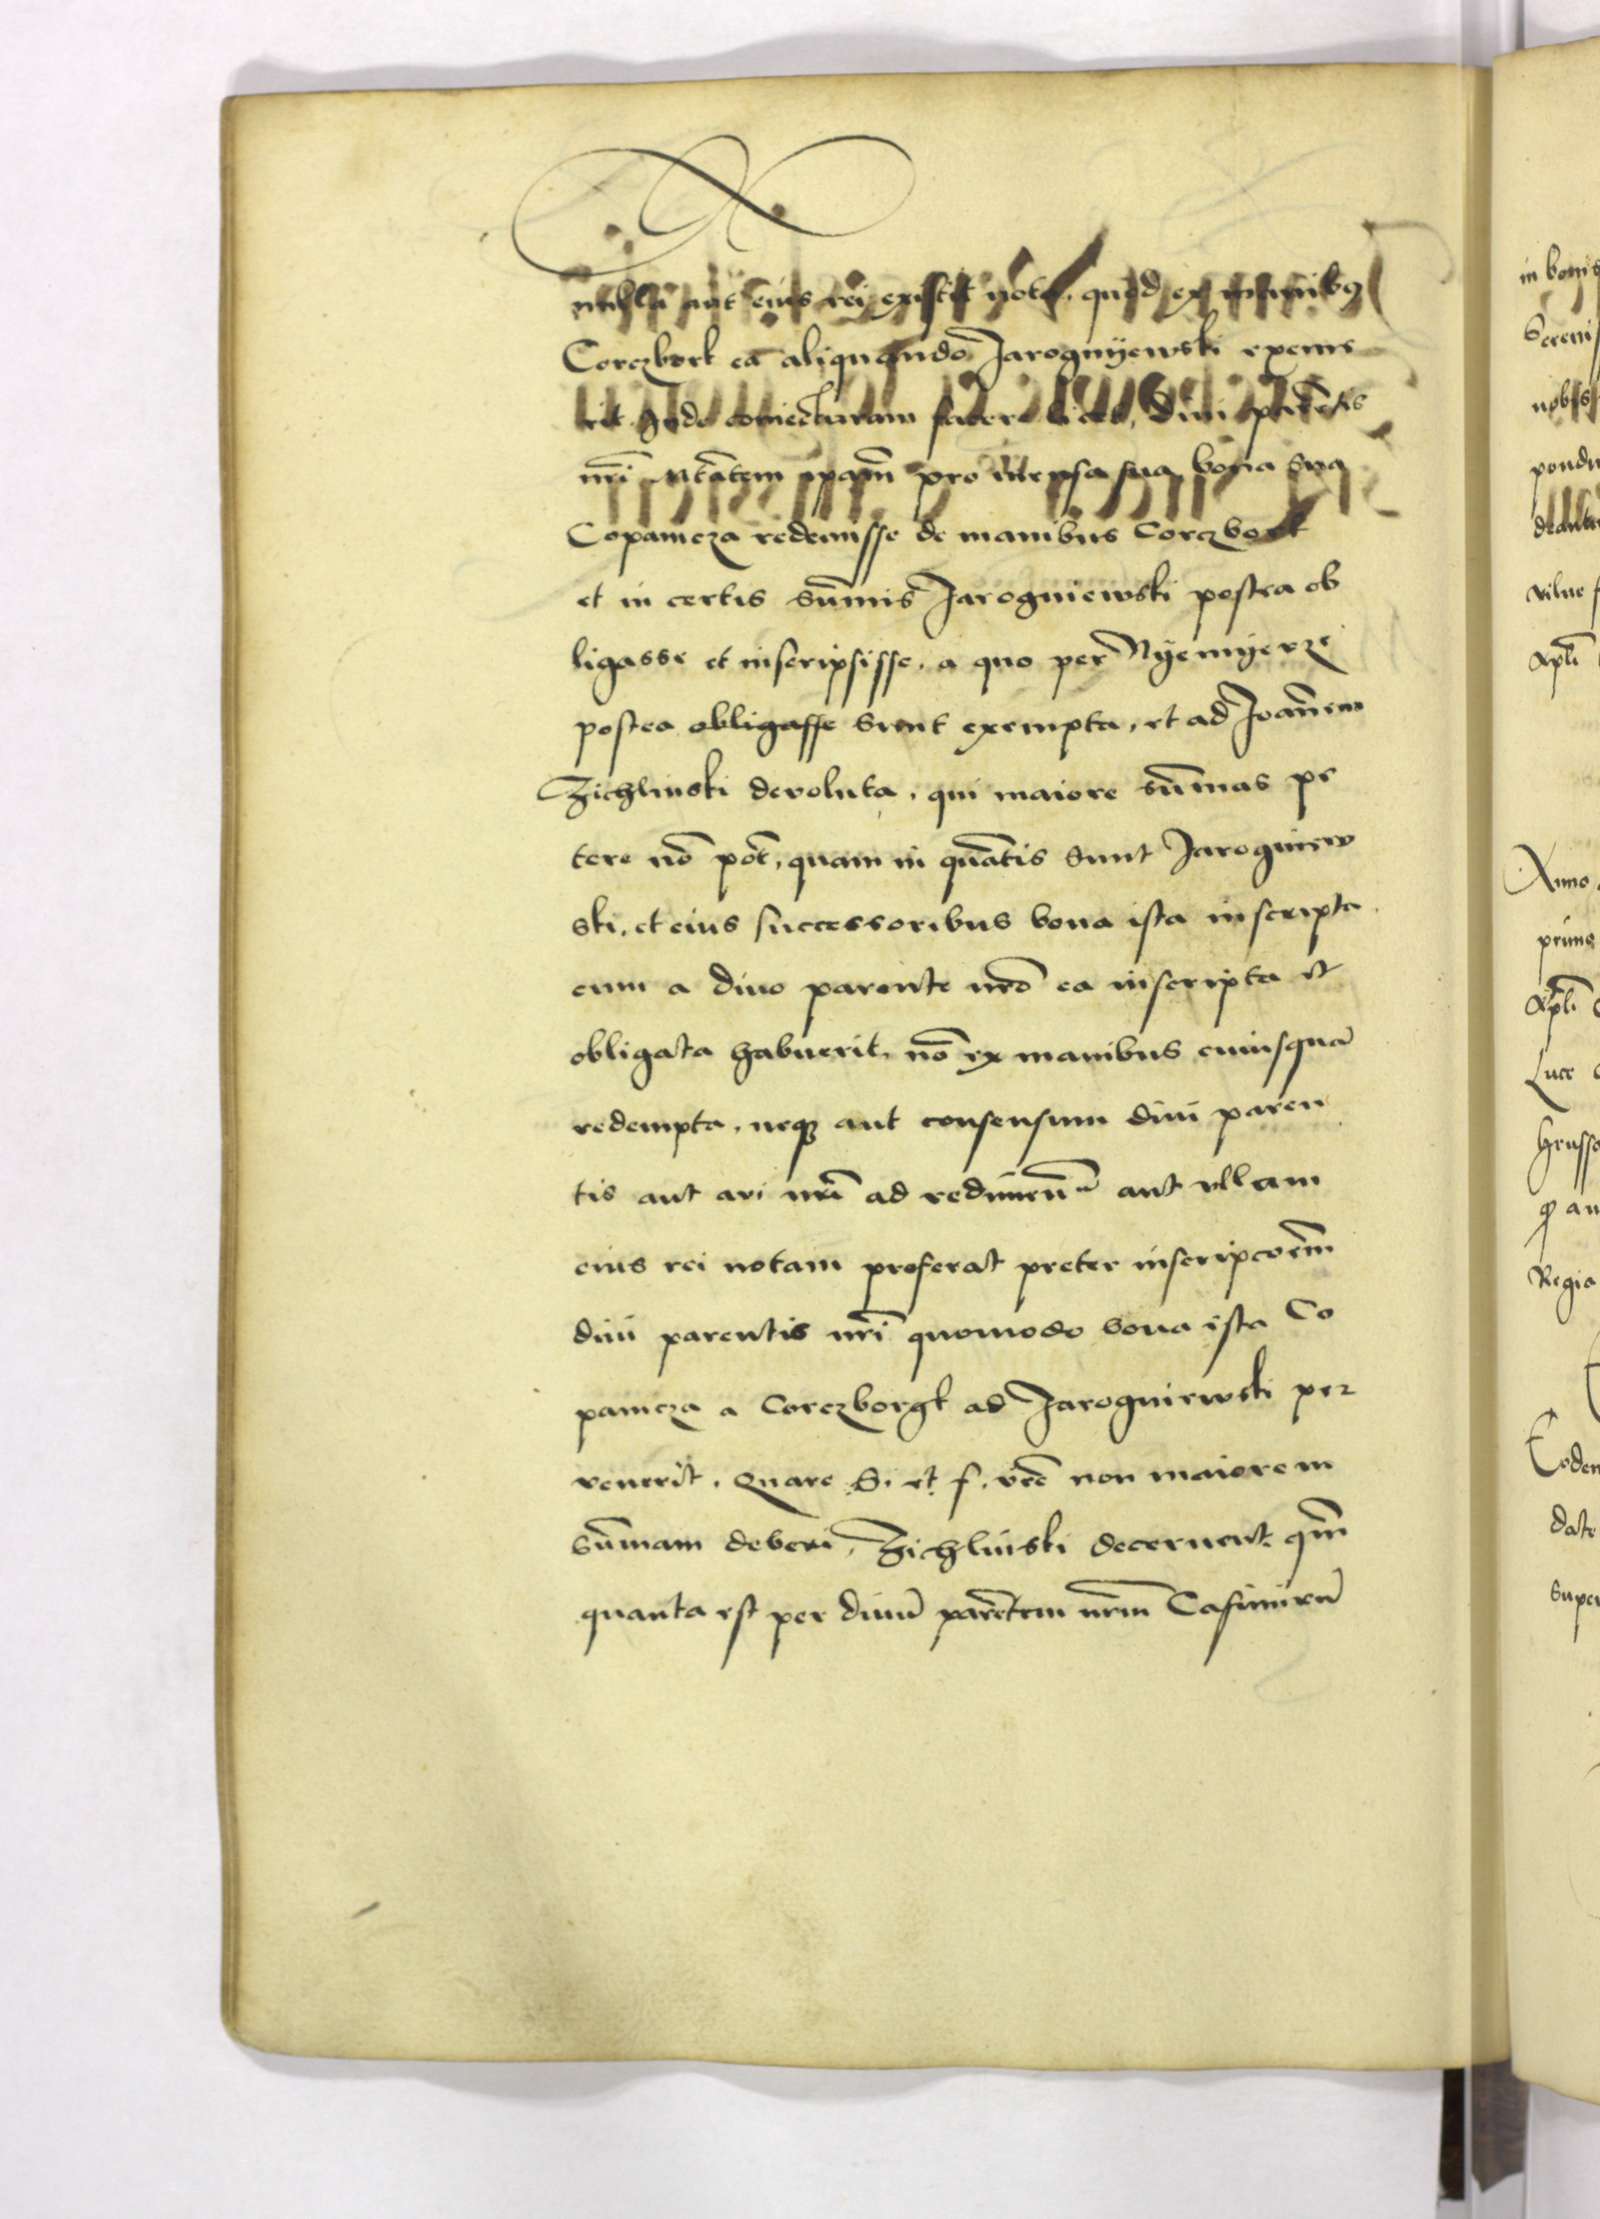 nulla aut eius rei existit nota, quod ex manibus
Corczbork ea aliquando Jarognyewski exeme
rit. Inde coniecturam facere licet, divi parentis
nri Mtatem ipam pro mensa sua bona sua
Copanicza redemisse de manibus Corczbork
et in certis summis Jarogniewski postea ob
ligasse et inscripsisse, a quo per Nyemyerze
postea obligasse sunt exempta, et ad Joannem
Zichlinski devoluta, qui maiore summas pe
tere no pot, quam in quatis sunt Jarogniew
ski, et eius successoribus bona ista inscripta
cum a divo parente nro ea inscripta et
obligata habuerit, no ex manibus cuiusqua
redempta, neq aut consensum divi paren
tis aut avi nri ad redimen aut ullam
eius rei notam proferat preter inscripcoem
divi parentis nri quomodo bona ista Co
panicza a Corczborgk ad Jarogniewski per
venerit. Quare S. et f. vre non maiorem
summam deberi Zichlinski decernent qm
quanta est per divu parentem nrm Casimiru
in bonis
Sereniss
nobis
vilne
Apli
Anno
prima
Apli
Luce
Regia
Eodem
date
super